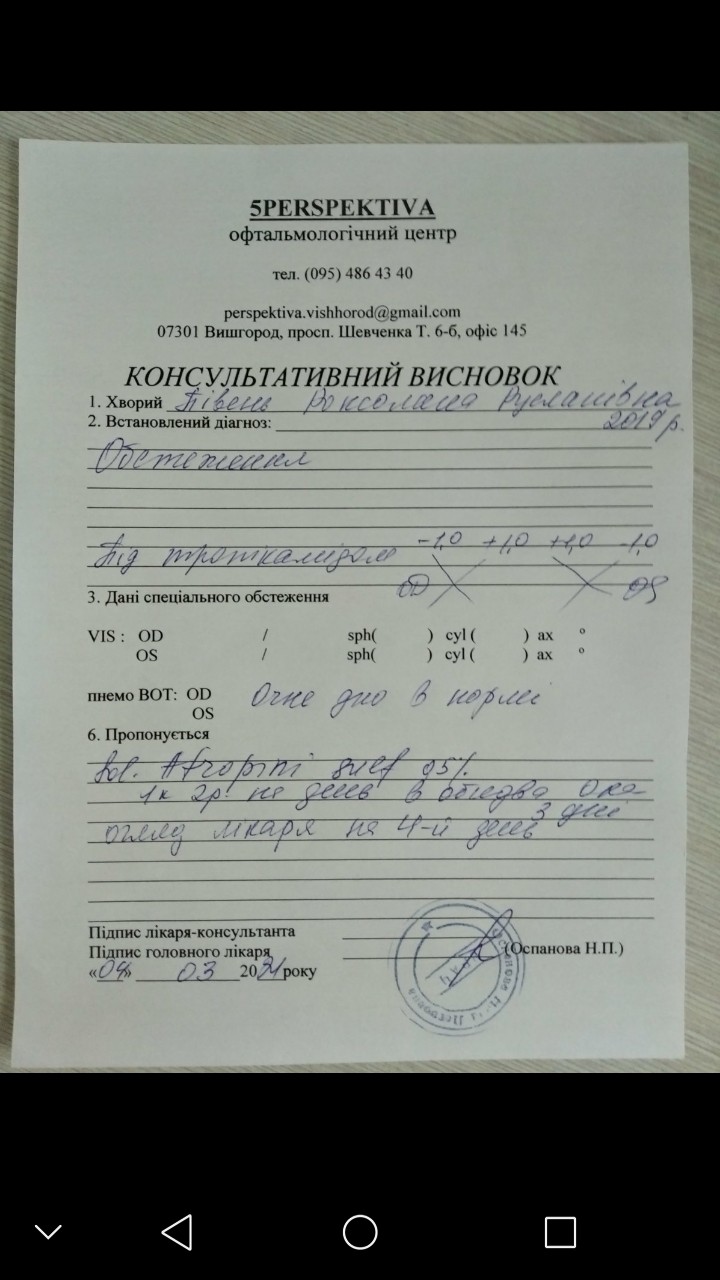 5PERSPEKTIVA
офтальмологічний центр
тел. (095) 486 43 40
perspektiva.vishhorod@gmail.com
07301 Вишгород, просп. Шевченка Т. 6-б, офіс 145
КОНСУЛЬТАТИВНИЙ ВИСНОВОК
1. Хворий Півень Роксолана Русланівна
2. Встановлений діагноз: 2019 р.
Обстеження
Під тропікамідом -1,0 +1,0 +1,0 -1,0
OD OS
3. Дані спеціального обстеження
VIS : OD / sph( ) cyl ( ) ax °
OS / sph( ) cyl ( ) ax °
пнемо ВОТ: OD Очне дно в нормі
OS
6. Пропонується
Sol. Atropini sulf
1к 2р. на день в обидва ока
3 дні
огляд лікаря на 4-й день
Підпис лікаря-консультанта
Підпис головного лікаря (Оспанова Н.П.)
«04» 03 20 року